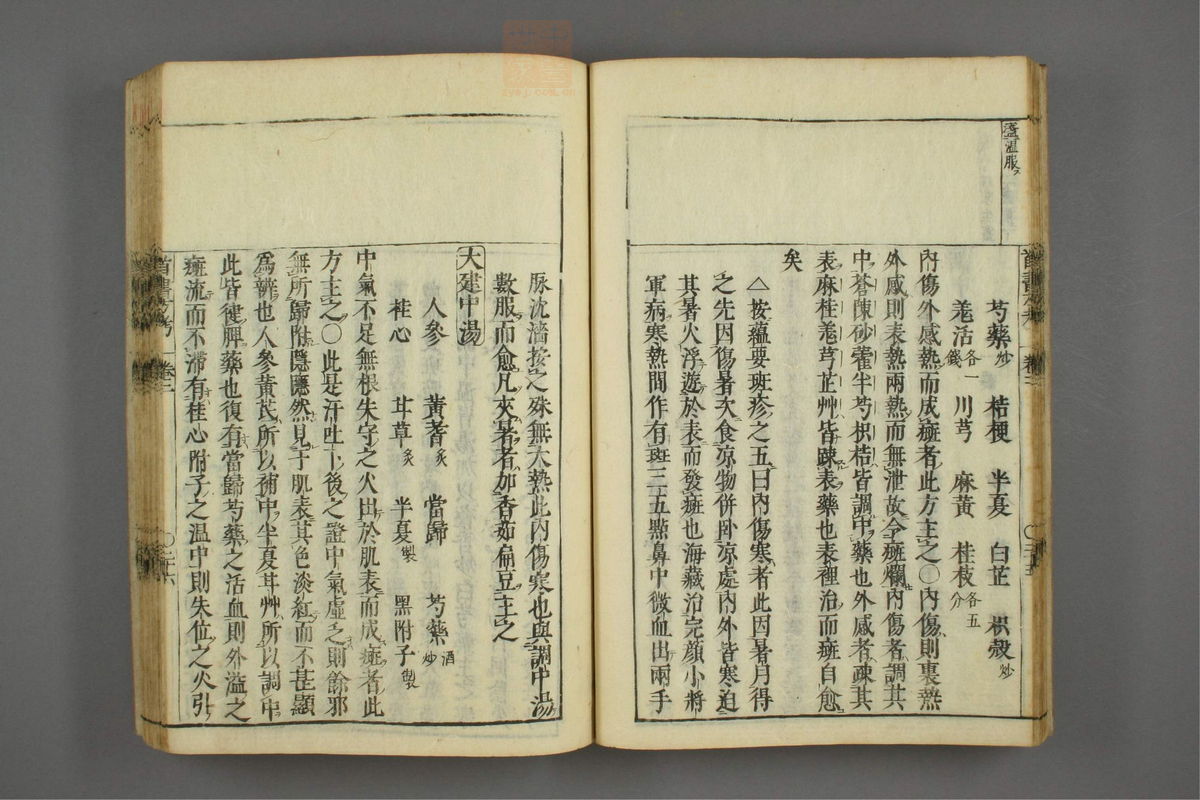 盞溫服
芍藥炒 桔梗 半夏 白芷 枳殼炒
羌活各一錢 川芎 麻黃 桂枝各五分
內傷外感熱而成癍者此方主之○內傷則裏熱
外感則表熱兩熱而無泄故令癍爛內傷者調其
中蒼陳砂藿半芍枳桔皆調中藥也外感者疎其
表麻桂羗芎芷艸皆疎表藥也表裡治而癍自愈
矣
△按蘊要斑疹之五曰內傷寒者此因暑月得
之先因傷暑次食凉物併卧凉處內外皆寒迫
其暑火浮遊於表而發癍也海藏治完顔小將
軍病寒熱間作有斑三五點鼻中微血出兩手
脉沈濇按之殊無大熱此內傷寒也與調中湯
數服而愈凡夾暑者加香茹扁豆主之
大建中湯
人參 黃蓍炙 當歸 芍藥酒炒
桂心 甘草炙 半夏製 黑附子製
中氣不足無根失守之火出於肌表而成癍者此
方主之○此是汗吐下後之證中氣虛乏則餘邪
無所歸附隱隱然見于肌表其色淡紅而不甚顯
爲辨也人參黃芪所以補中半夏甘艸所以調中
此皆健脾藥也復有當歸芍藥之活血則外溢之
癍流而不滯有桂心附子之温中則失位之火引